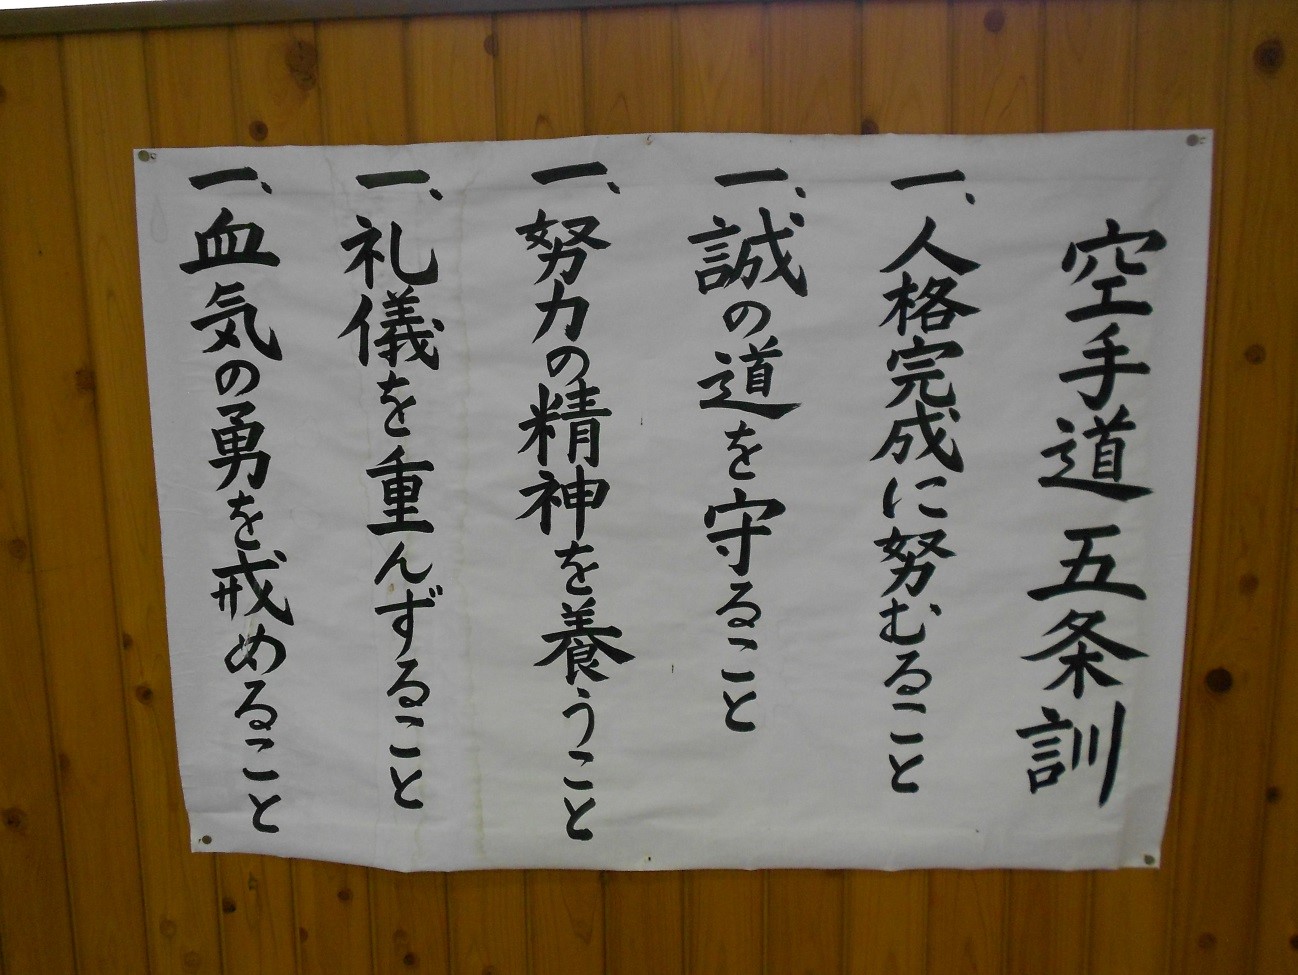 空手道五条訓
一、人格完成に努むること
一、誠の道を守ること
一、努力の精神を養うこと
一、礼儀を重んずること
一、血気の勇を戒めること